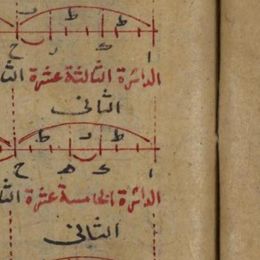 ط ط د
ا ح د ح
الدائرة الثالثة عشرة الثا
الثاني
ط د ط
ا ح ه ح
الدائرة الخامسة عشرة الثا
الثاني